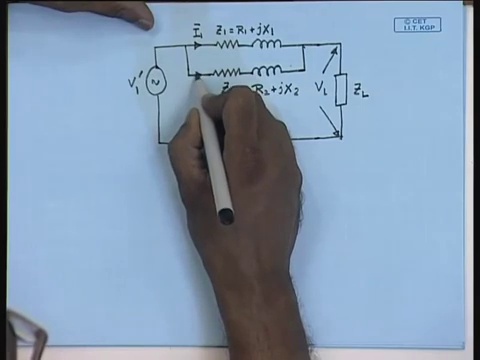 © CET
I.I.T. KGP
Ī₁ Z₁ = R₁ + jX₁
V₁′ R₂ + jX₂ V_L Z_L